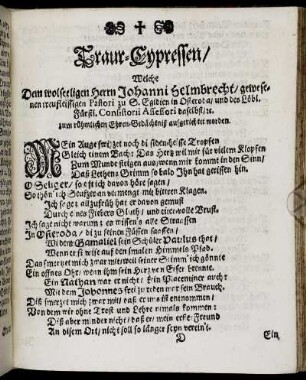 Traur-Cypressen/
Welche
Dem wolseeligen Herrn Johanni Helmbrecht, gewese-
nen treufleissigen Pastori zu S. Egidien in Osteroda/ und des Löbl.
Fürstl. Consistorii Assessori daselbst/ etc.
zum rühmlichen Ehren-Gedächtniß aufgerichtet worden.
MEin Auge
Gleich einem Bach: Das Hertz wil mir für vielem Klopfen
Zum Munde steigen aus/ wenn mir kommt in den Sinn/
Daß Lethens Grimm so bald Ihn hat gerissen hin.
O Seliger/ so oft ich davon höre sagen/
So oft ich Seufzer mit bittern Klagen.
Ich sage: allzufrüh hat er davon gemust
Durch eines Fiebers Glut/ und Brust.
Ich sage nicht warum: es wissen's alle Strassen
In Osteroda/ die zu seinen Füssen sassen/
Wie dem Gamaliel sein Schüler Paulus that/
Wenn er so weise auf den schmalen Himmels-Pfad.
Das schmertzt mich zwar wie seiner Stimm' ich gönnte
Ein offnes Ohr/ wenn ihm sein Hertz von Eifer brennte.
Ein Nathan war er nicht: Ein Placentiner auch:
Mit dem Johannes frei zu reden war sein Brauch.
Diß schmertzt mich zwar wol/ daß er uns ist entnommen/
Von dem wir ohne Trost und Lehre niemals kommen:
Diß aber minder nicht/ daß er/ mein erster Freund
An diesem Ort/ nicht soll so länger seyn verein't.
D
Ein